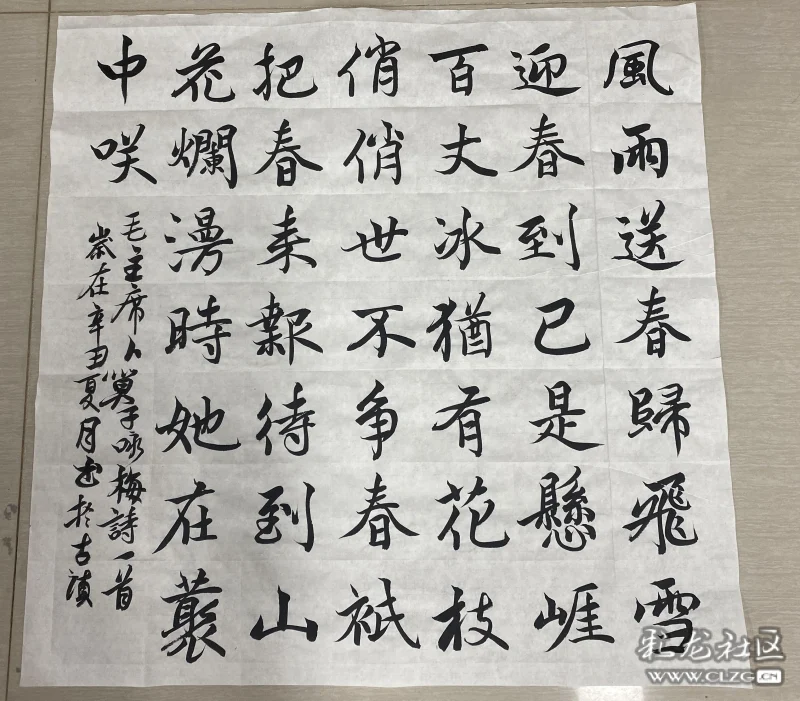 風雨送春歸飛雪
迎春到已是懸崕
百丈冰猶有花枝
俏俏世不争春祇
把春来報待到山
花爛漫時她在藂
中咲
毛主席卜算子咏梅詩一首
歲在辛丑夏月书於古滇
彩龙社区
WWW.CLZG.CN